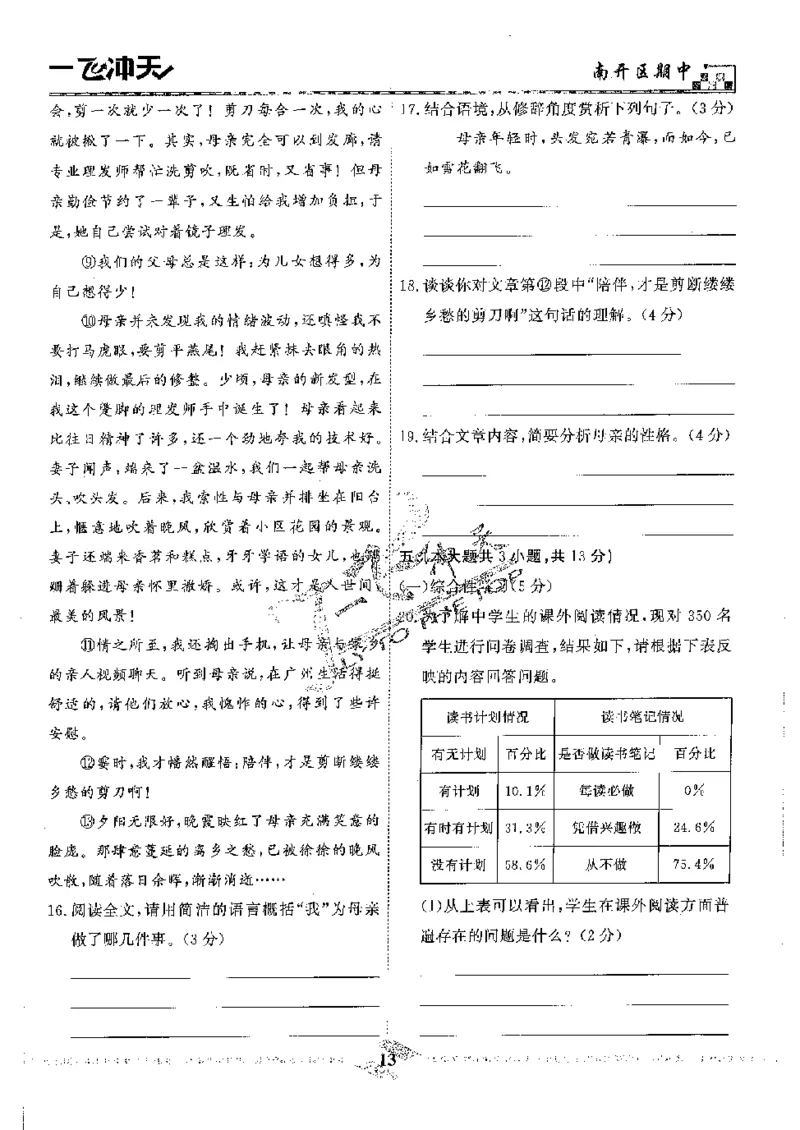 一飞冲天
南开区期中
会,剪一次就少一次了！剪刀每合一次,我的心
就被揪了一下。其实,母亲完全可以到发廊,请
专业理发师帮忙洗剪吹,既省时,又省事！但母
亲勤俭节约了一辈子,又生怕给我增加负担,于
是,她自己尝试对着镜子理发。
⑨我们的父母总是这样:为儿女想得多,为
自己想得少！
⑩母亲并未发现我的情绪波动,还嗔怪我不
要打马虎眼,要剪平燕尾！我赶紧抹去眼角的热
泪,继续做最后的修整。少顷,母亲的新发型,在
我这个蹩脚的理发师手中诞生了！母亲看起来
比往日精神了许多,还一个劲地夸我的技术好。
妻子闻声,端来了一盆温水,我们一起帮母亲洗
头、吹头发。后来,我索性与母亲并排坐在阳台
上,惬意地吹着晚风,欣赏着小区花园的景观。
妻子还端来香茗和糕点,牙牙学语的女儿,也蹒
跚着躲进母亲怀里撒娇。或许,这才是人世间
最美的风景！
⑪情之所至,我还掏出手机,让母亲与故乡
的亲人视频聊天。听到母亲说,在广州生活得挺
舒适的,请他们放心,我愧怍的心,得到了些许
安慰。
⑫霎时,我才幡然醒悟:陪伴,才是剪断缕缕
乡愁的剪刀啊！
⑬夕阳无限好,晚霞映红了母亲充满笑意的
脸庞。那肆意蔓延的离乡之愁,已被徐徐的晚风
吹散,随着落日余晖,渐渐消逝……
16.阅读全文,请用简洁的语言概括“我”为母亲
做了哪几件事。(3分)
17.结合语境,从修辞角度赏析下列句子。(3分)
母亲年轻时,头发宛若青瀑,而如今,已
如雪花翻飞。
18.读谈你对文章第⑫段中“陪伴,才是剪断缕缕
乡愁的剪刀啊”这句话的理解。(4分)
19.结合文章内容,简要分析母亲的性格。(4分)
五、(本大题共3小题,共13分)
(一)综合性学习(5分)
20.为了解中学生的课外阅读情况,现对350名
学生进行问卷调查,结果如下,请根据下表反
映的内容回答问题。
读书计划情况 读书笔记情况
有无计划 百分比 是否做读书笔记 百分比
有计划 10.1% 每读必做 0%
有时有计划 31.3% 凭借兴趣做 24.6%
没有计划 58.6% 从不做 75.4%
(1)从上表可以看出,学生在课外阅读方面普
遍存在的问题是什么？(2分)
13